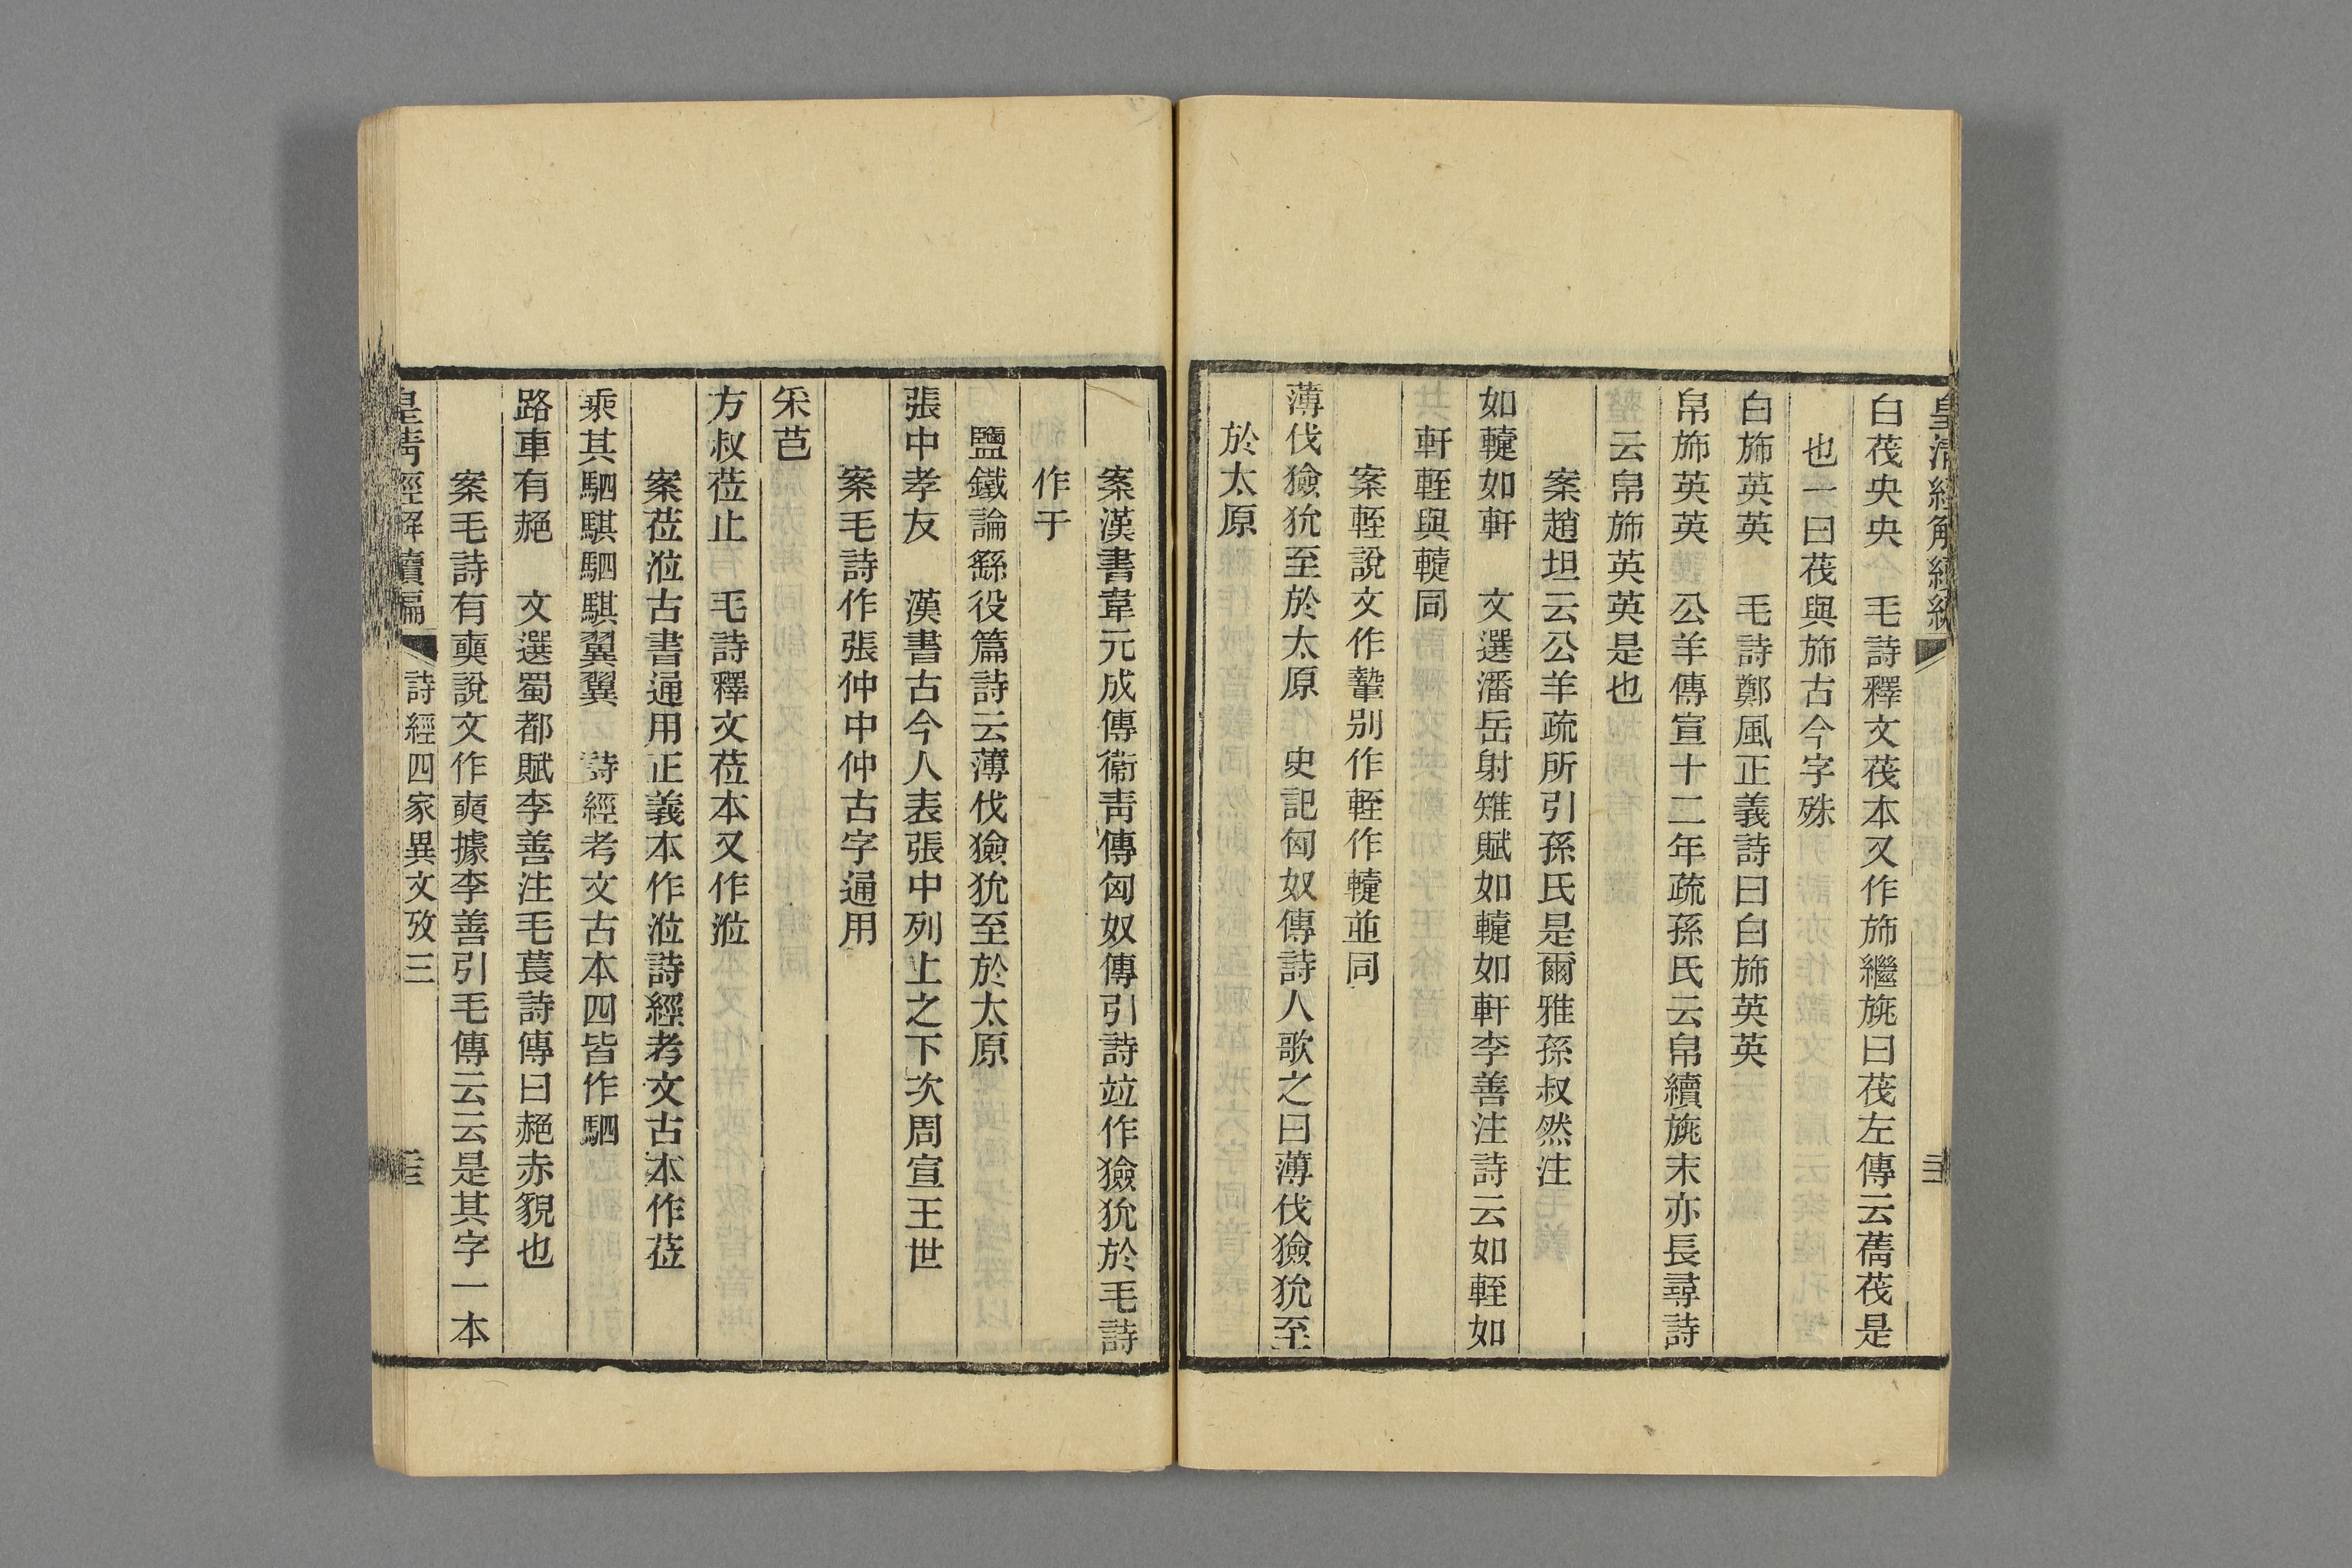 白茷央央　毛詩釋文茷本又作斾繼旐曰茷左傳云蒨茷是
也一曰茷與斾古今字殊
白斾英英　毛詩鄭風正義詩曰白斾英英
帛斾英英　公羊傳宣十二年疏孫氏云帛續旐末亦長尋詩
云帛斾英英是也
案趙坦云公羊疏所引孫氏是爾雅孫叔然注
如𨎌如軒　文選潘岳射雉賦如𨎌如軒李善注詩云如輊如
軒輊與𨎌同
案輊說文作䡹別作輊作𨎌並同
薄伐獫狁至於太原　史記匈奴傳詩人歌之曰薄伐獫狁至
於太原
案漢書韋元成傳衞靑傳匈奴傳引詩竝作獫狁於毛詩
作于
鹽鐵論繇役篇詩云薄伐獫狁至於太原
張中孝友　漢書古今人表張中列上之下次周宣王世
案毛詩作張仲中仲古字通用
采芑
方叔莅止　毛詩釋文莅本又作涖
案莅涖古書通用正義本作涖詩經考文古本作莅
乘其駟騏駟騏翼翼　詩經考文古本四皆作駟
路車有赩　文選蜀都賦李善注毛萇詩傳曰赩赤貌也
案毛詩有奭說文作奭據李善引毛傳云云是其字一本
皇清經解續編　詩經四家異文攷三